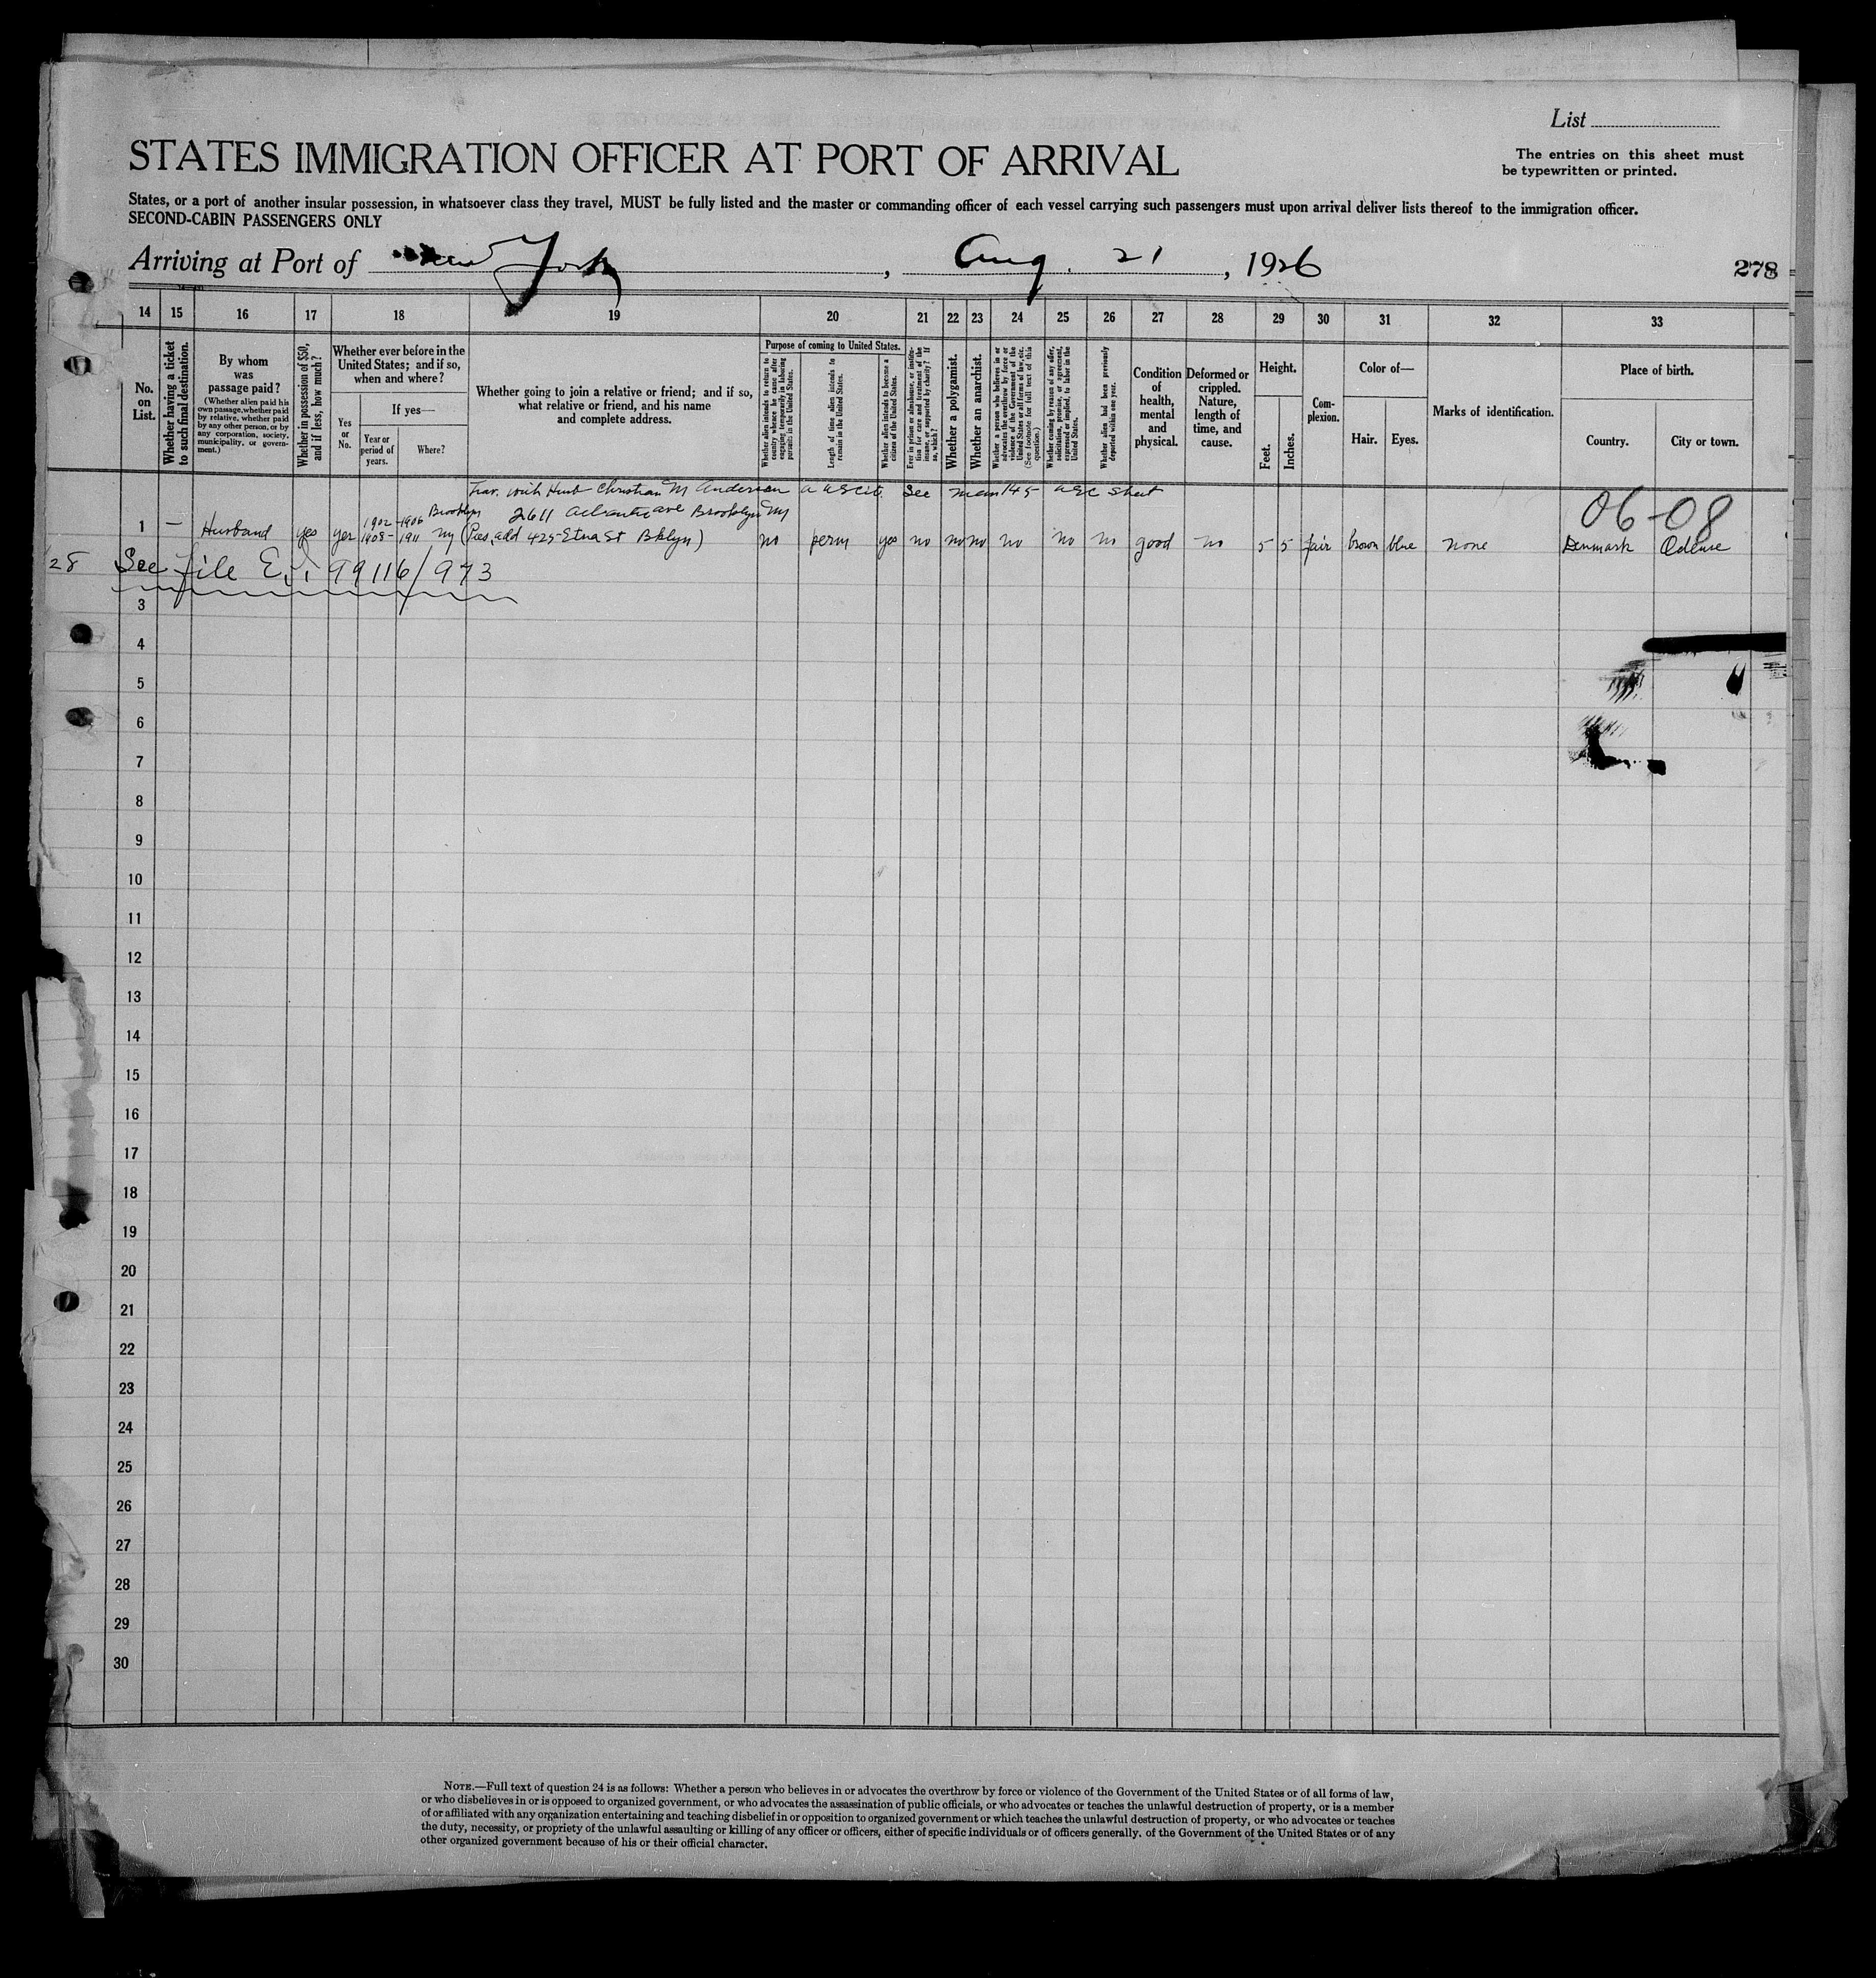 List
STATES IMMIGRATION OFFICER AT PORT OF ARRIVAL
The entries on this sheet must
be typewritten or printed.
States, or a port of another insular possession, in whatsoever class they travel, MUST be fully listed and the master or commanding officer of each vessel carrying such passengers must upon arrival deliver lists thereof to the immigration officer.
SECOND-CABIN PASSENGERS ONLY
Arriving at Port of New York, Aug. 21, 1926
278
14 15 16 17 18 19 20 21 22 23 24 25 26 27 28 29 30 31 32 33
No. on List.
Whether having a ticket to such final destination.
By whom was passage paid?
(Whether alien paid his own passage, whether paid by relative, whether paid by any other person, or by any corporation, society, municipality, or government.)
Whether in possession of $50, and if less, how much?
Whether ever before in the United States; and if so, when and where?
Yes or No.
If yes—
Year or period of years.
Where?
Whether going to join a relative or friend; and if so, what relative or friend, and his name and complete address.
Purpose of coming to United States.
Whether alien intends to return to country whence he came after engaging temporarily in laboring pursuits in the United States.
Length of time alien intends to remain in the United States.
Whether alien intends to become a citizen of the United States.
Ever in prison or almshouse, or institution for care and treatment of the insane, or supported by charity? If so, which?
Whether a polygamist.
Whether an anarchist.
Whether a person who believes in or advocates the overthrow by force or violence of the Government of the United States or all forms of law, etc. (See footnote for full text of this question.)
Whether coming by reason of any offer, solicitation, promise, or agreement, expressed or implied, to labor in the United States.
Whether alien had been previously deported within one year.
Condition of health, mental and physical.
Deformed or crippled. Nature, length of time, and cause.
Height.
Feet.
Inches.
Complexion.
Color of—
Hair.
Eyes.
Marks of identification.
Place of birth.
Country.
City or town.
Trav. with Husb Christian M Andersen a USCit. See man 145 USC sheet
06-08
2611 Atlantic ave Brooklyn NY
1 — Husband yes yes 1902-1906 1908-1911 Brooklyn NY (Res. add 425 Etna St Bklyn) no perm yes no no no no no no good no 5 5 fair brown blue none Denmark Odense
28 See file E.I. 99116/973
3
4
5
6
7
8
9
10
11
12
13
14
15
16
17
18
19
20
21
22
23
24
25
26
27
28
29
30
NOTE.—Full text of question 24 is as follows: Whether a person who believes in or advocates the overthrow by force or violence of the Government of the United States or of all forms of law,
or who disbelieves in or is opposed to organized government, or who advocates the assassination of public officials, or who advocates or teaches the unlawful destruction of property, or is a member
of or affiliated with any organization entertaining and teaching disbelief in or opposition to organized government or which teaches the unlawful destruction of property, or who advocates or teaches
the duty, necessity, or propriety of the unlawful assaulting or killing of any officer or officers, either of specific individuals or of officers generally, of the Government of the United States or of any
other organized government because of his or their official character.